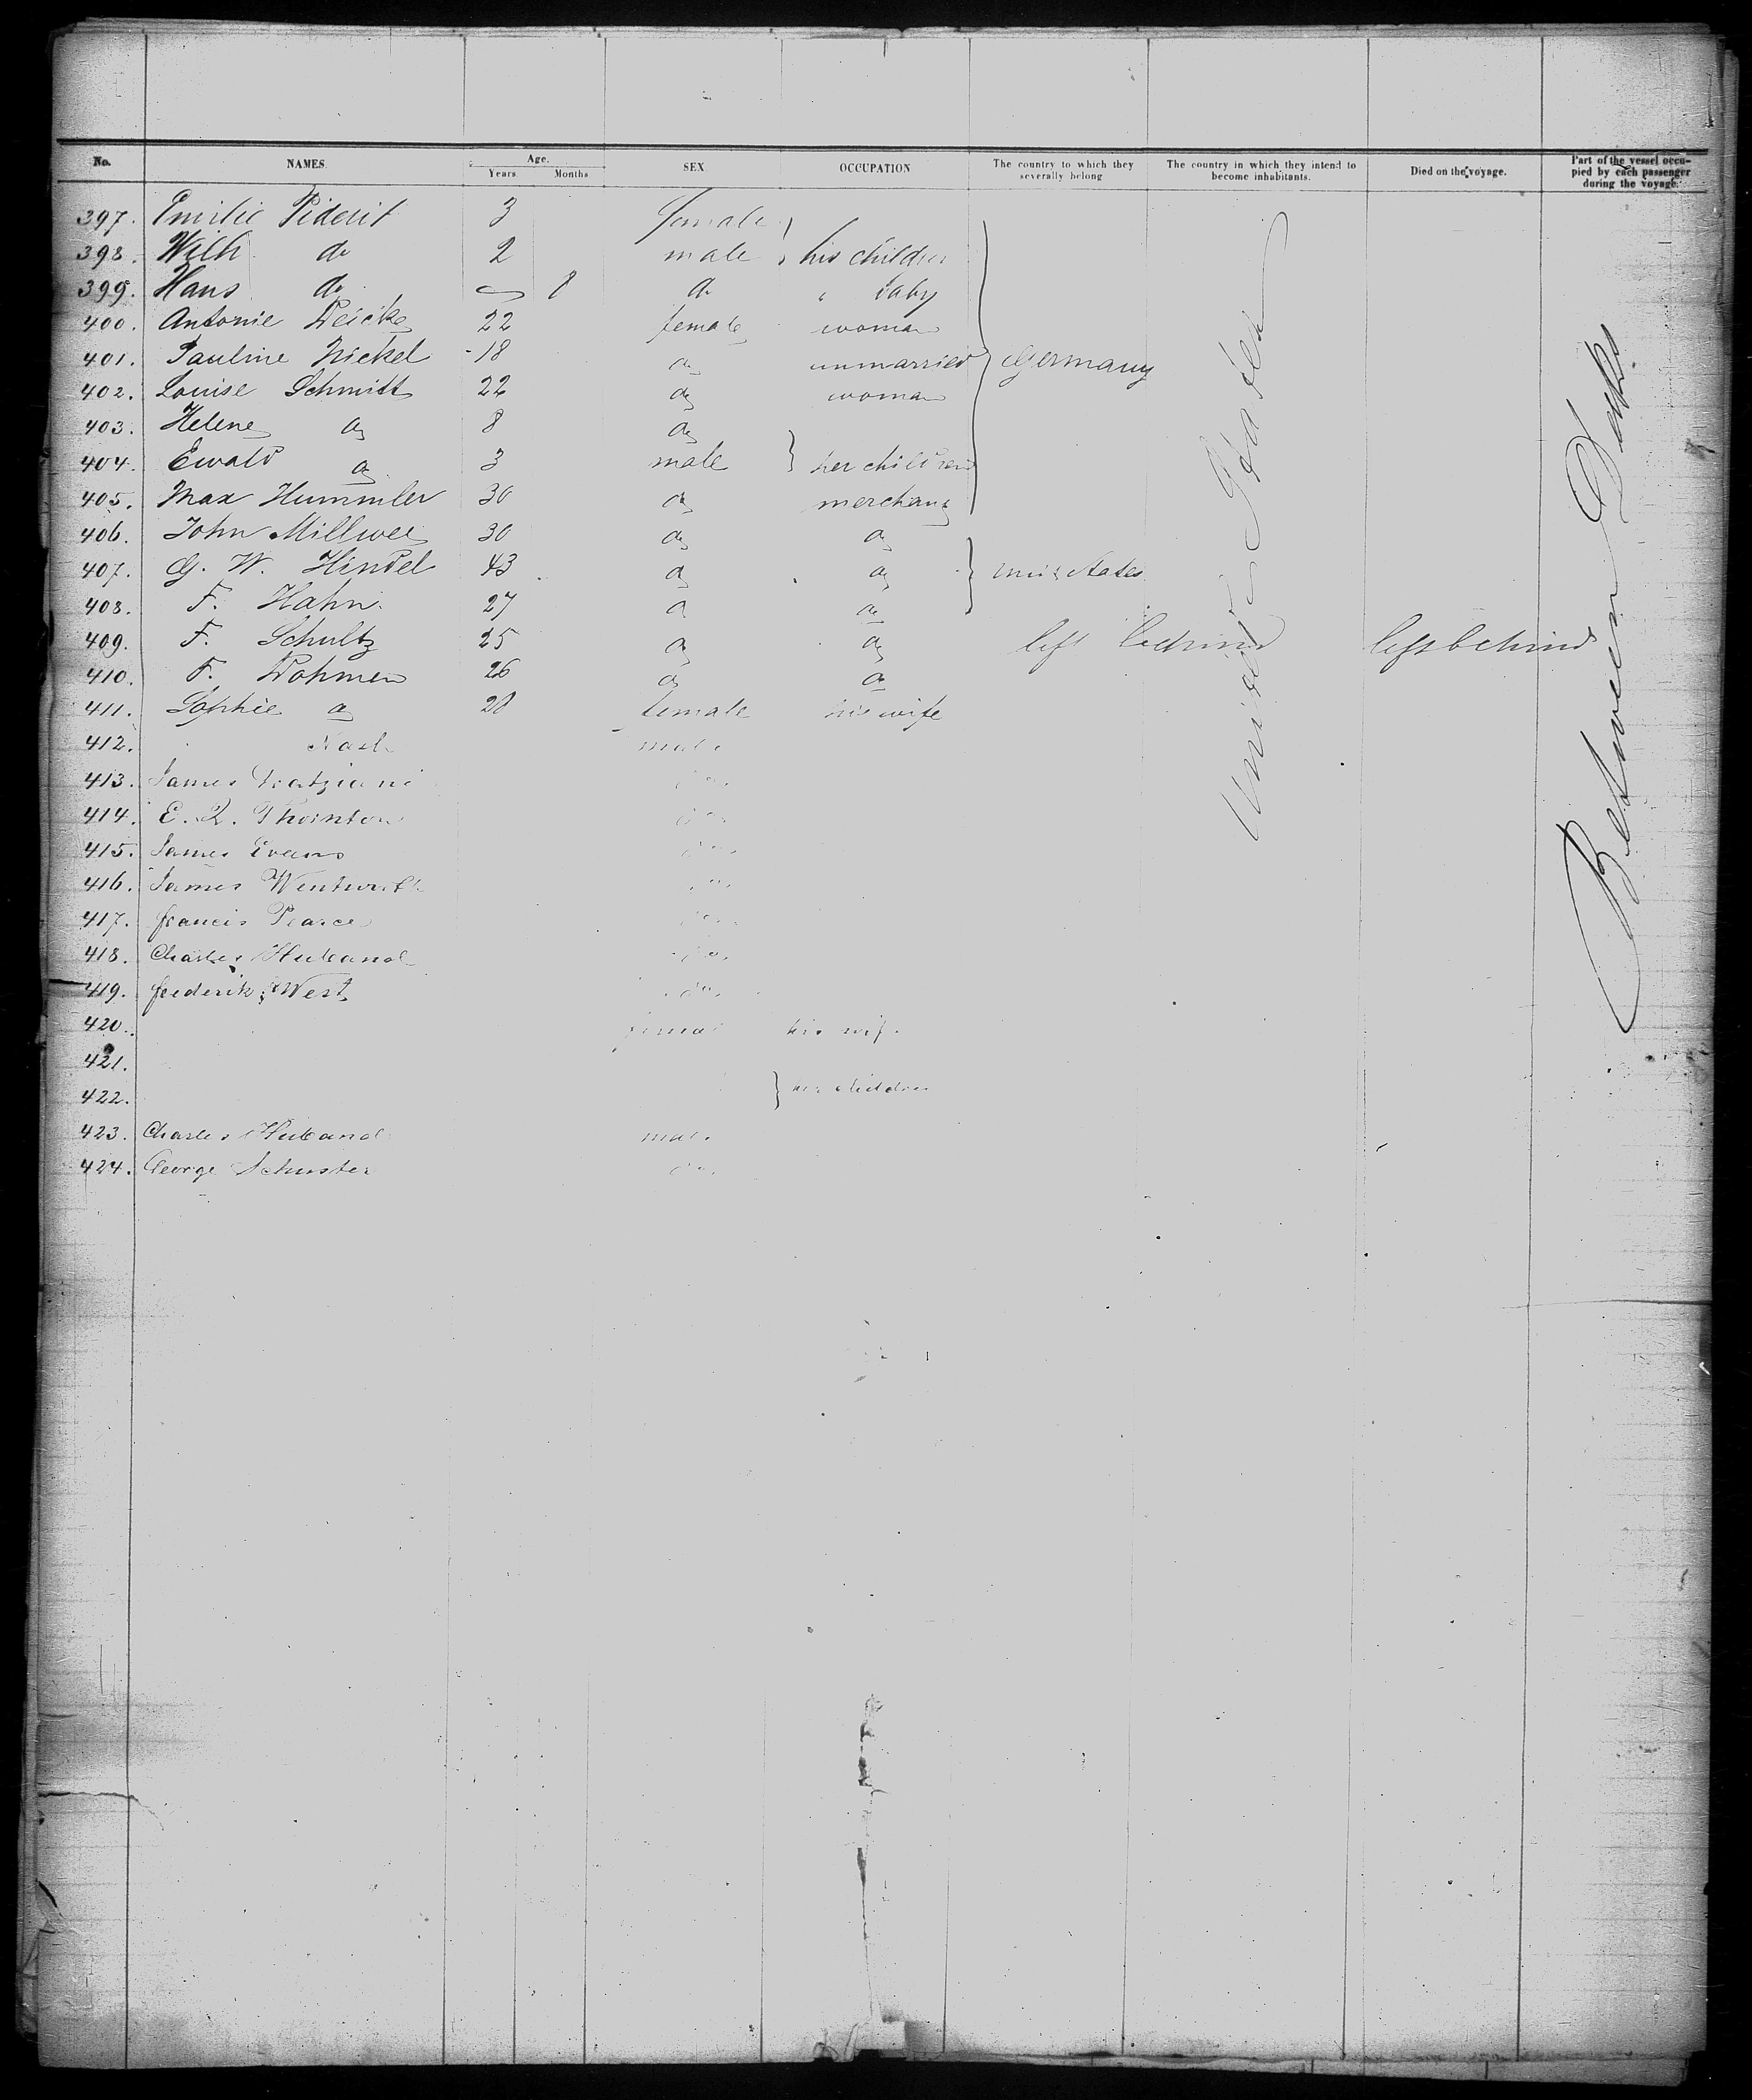 No. NAMES. Age. Years. Months SEX OCCUPATION The country to which they severally belong The country in which they intend to become inhabitants. Died on the voyage. Part of the vessel occupied by each passenger during the voyage.
397. Emilie Piderit 3 female
398. Wilh. do 2 male } his children
399. Hans do 8 do " baby
400. Antonie Deicke 22 female woman
401. Pauline Nickel 18 do unmarried } Germany
402. Louise Schmitt 22 do woman
403. Helene do 8 do
404. Ewald do 3 male } her children
405. Max Hummler 30 do merchant
406. John Millwee 30 do do
407. G. W. Hindel 43 do do } Unit States
408. F. Hahn 27 do do
409. F. Schultz 25 do do left behind left behind
410. F. Dohmen 26 do do
411. Sophie do 20 female his wife
412. Nash male
413. James do.
414. E. Q. Thornton do.
415. James Evans do.
416. James Wentworth do.
417. francis Pearce do.
418. Charles Huband do.
419. frederik West do.
420. female his wife
421.
422. } his children
423. Charles Huband male
424. George Schuster do.
United States
Between Decks